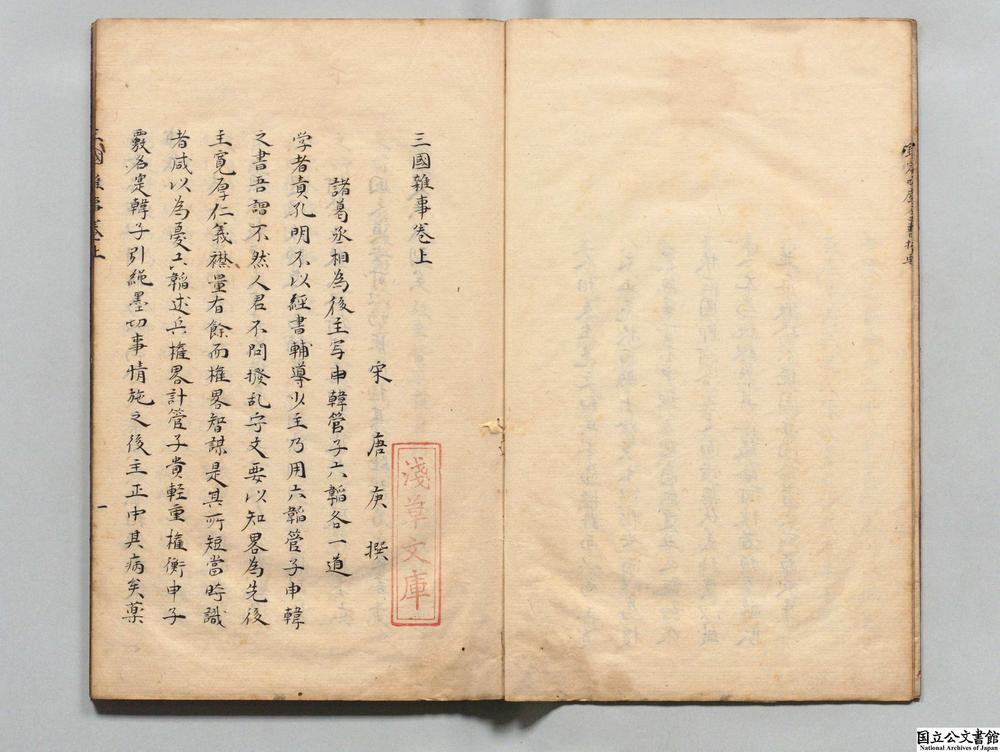 三國雜事卷上
宋 唐 庚 撰
諸葛丞相為後主写申韓管子六韜各一道
学者責孔明不以經書輔導少主乃用六韜管子申韓
之書吾謂不然人君不問撥乱守文要以知畧為先後
主寛厚仁義襟量有餘而權畧智謀是其所短當時識
者咸以為憂六韜述兵權畧計管子貴軽重權衡申子
覈名実韓子引繩墨切事情施之後主正中其病矣藥
淺草文庫
三國雜事卷上
一
国立公文書館
National Archives of Japan